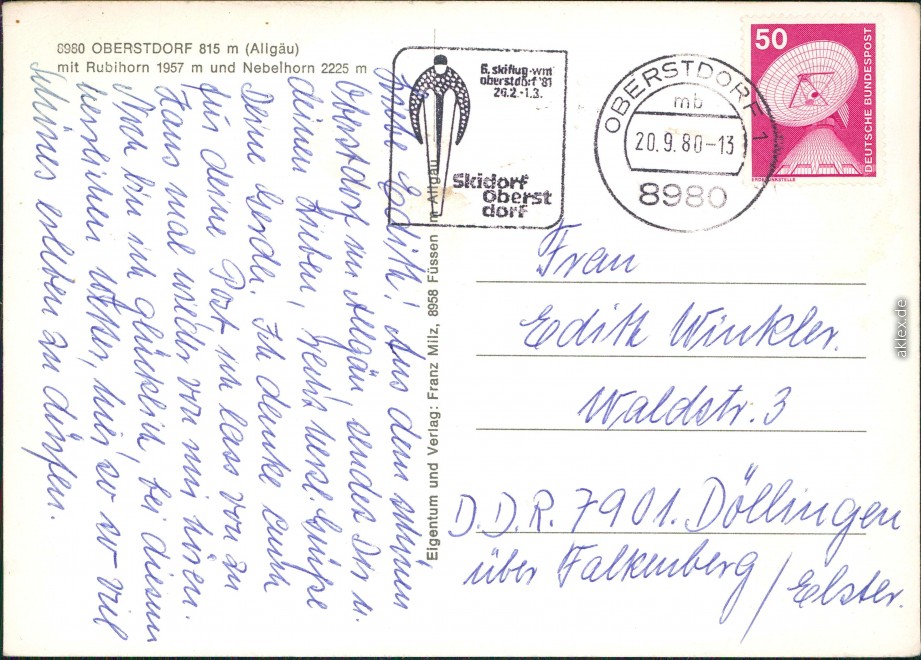 8980 OBERSTDORF 815 m (Allgäu)
mit Rubihorn 1957 m und Nebelhorn 2225 m
Liebe Edith! Aus dem schönen
Oberstdorf im Allgäu sendet Dir u.
deinen Lieben, recht herzl. Grüße
Deine Gerda. Ich danke auch
für deine Post ich lass von zu
Haus mal wieder von mir hören.
Nun bin ich glücklich, bei diesem
herrlichen Wetter, hier so viel
Schönes erleben zu dürfen.
Eigentum und Verlag: Franz Milz, 8958 Füssen im Allgäu
6. skiflug-wm
oberstdorf '81
26.2.-1.3.
Skidorf
Oberst
dorf
OBERSTDORF 1
mb
20.9.80-13
8980
50
DEUTSCHE BUNDESPOST
ERDEFUNKSTELLE
Frau
Edith Winkler.
Waldstr. 3
D.D.R. 7901. Döllingen
über Falkenberg / Elster.
aklex.de